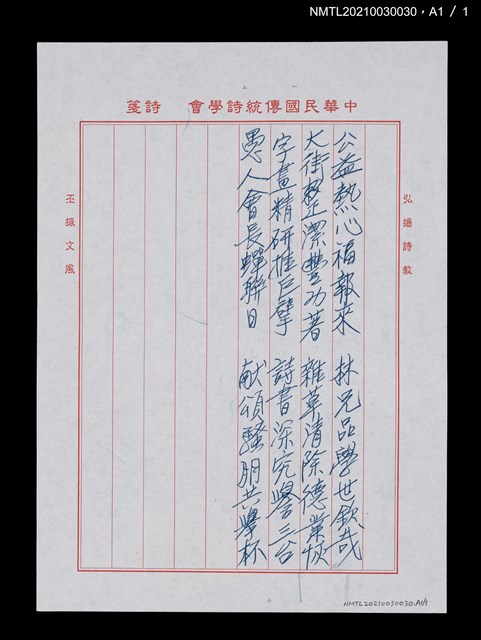 NMTL20210030030,A1/1
中華民國傳統詩學會 詩箋
弘揚詩教
公益熱心福報來 林兄品學世欽哉
大街整潔豐功著 雜草清除德業恢
字畫精研推巨擘 詩書深究譽三台
愚人會長蟬聯日 献頌騷朋共舉杯
丕振文風
NMTL20210030030.A1/1